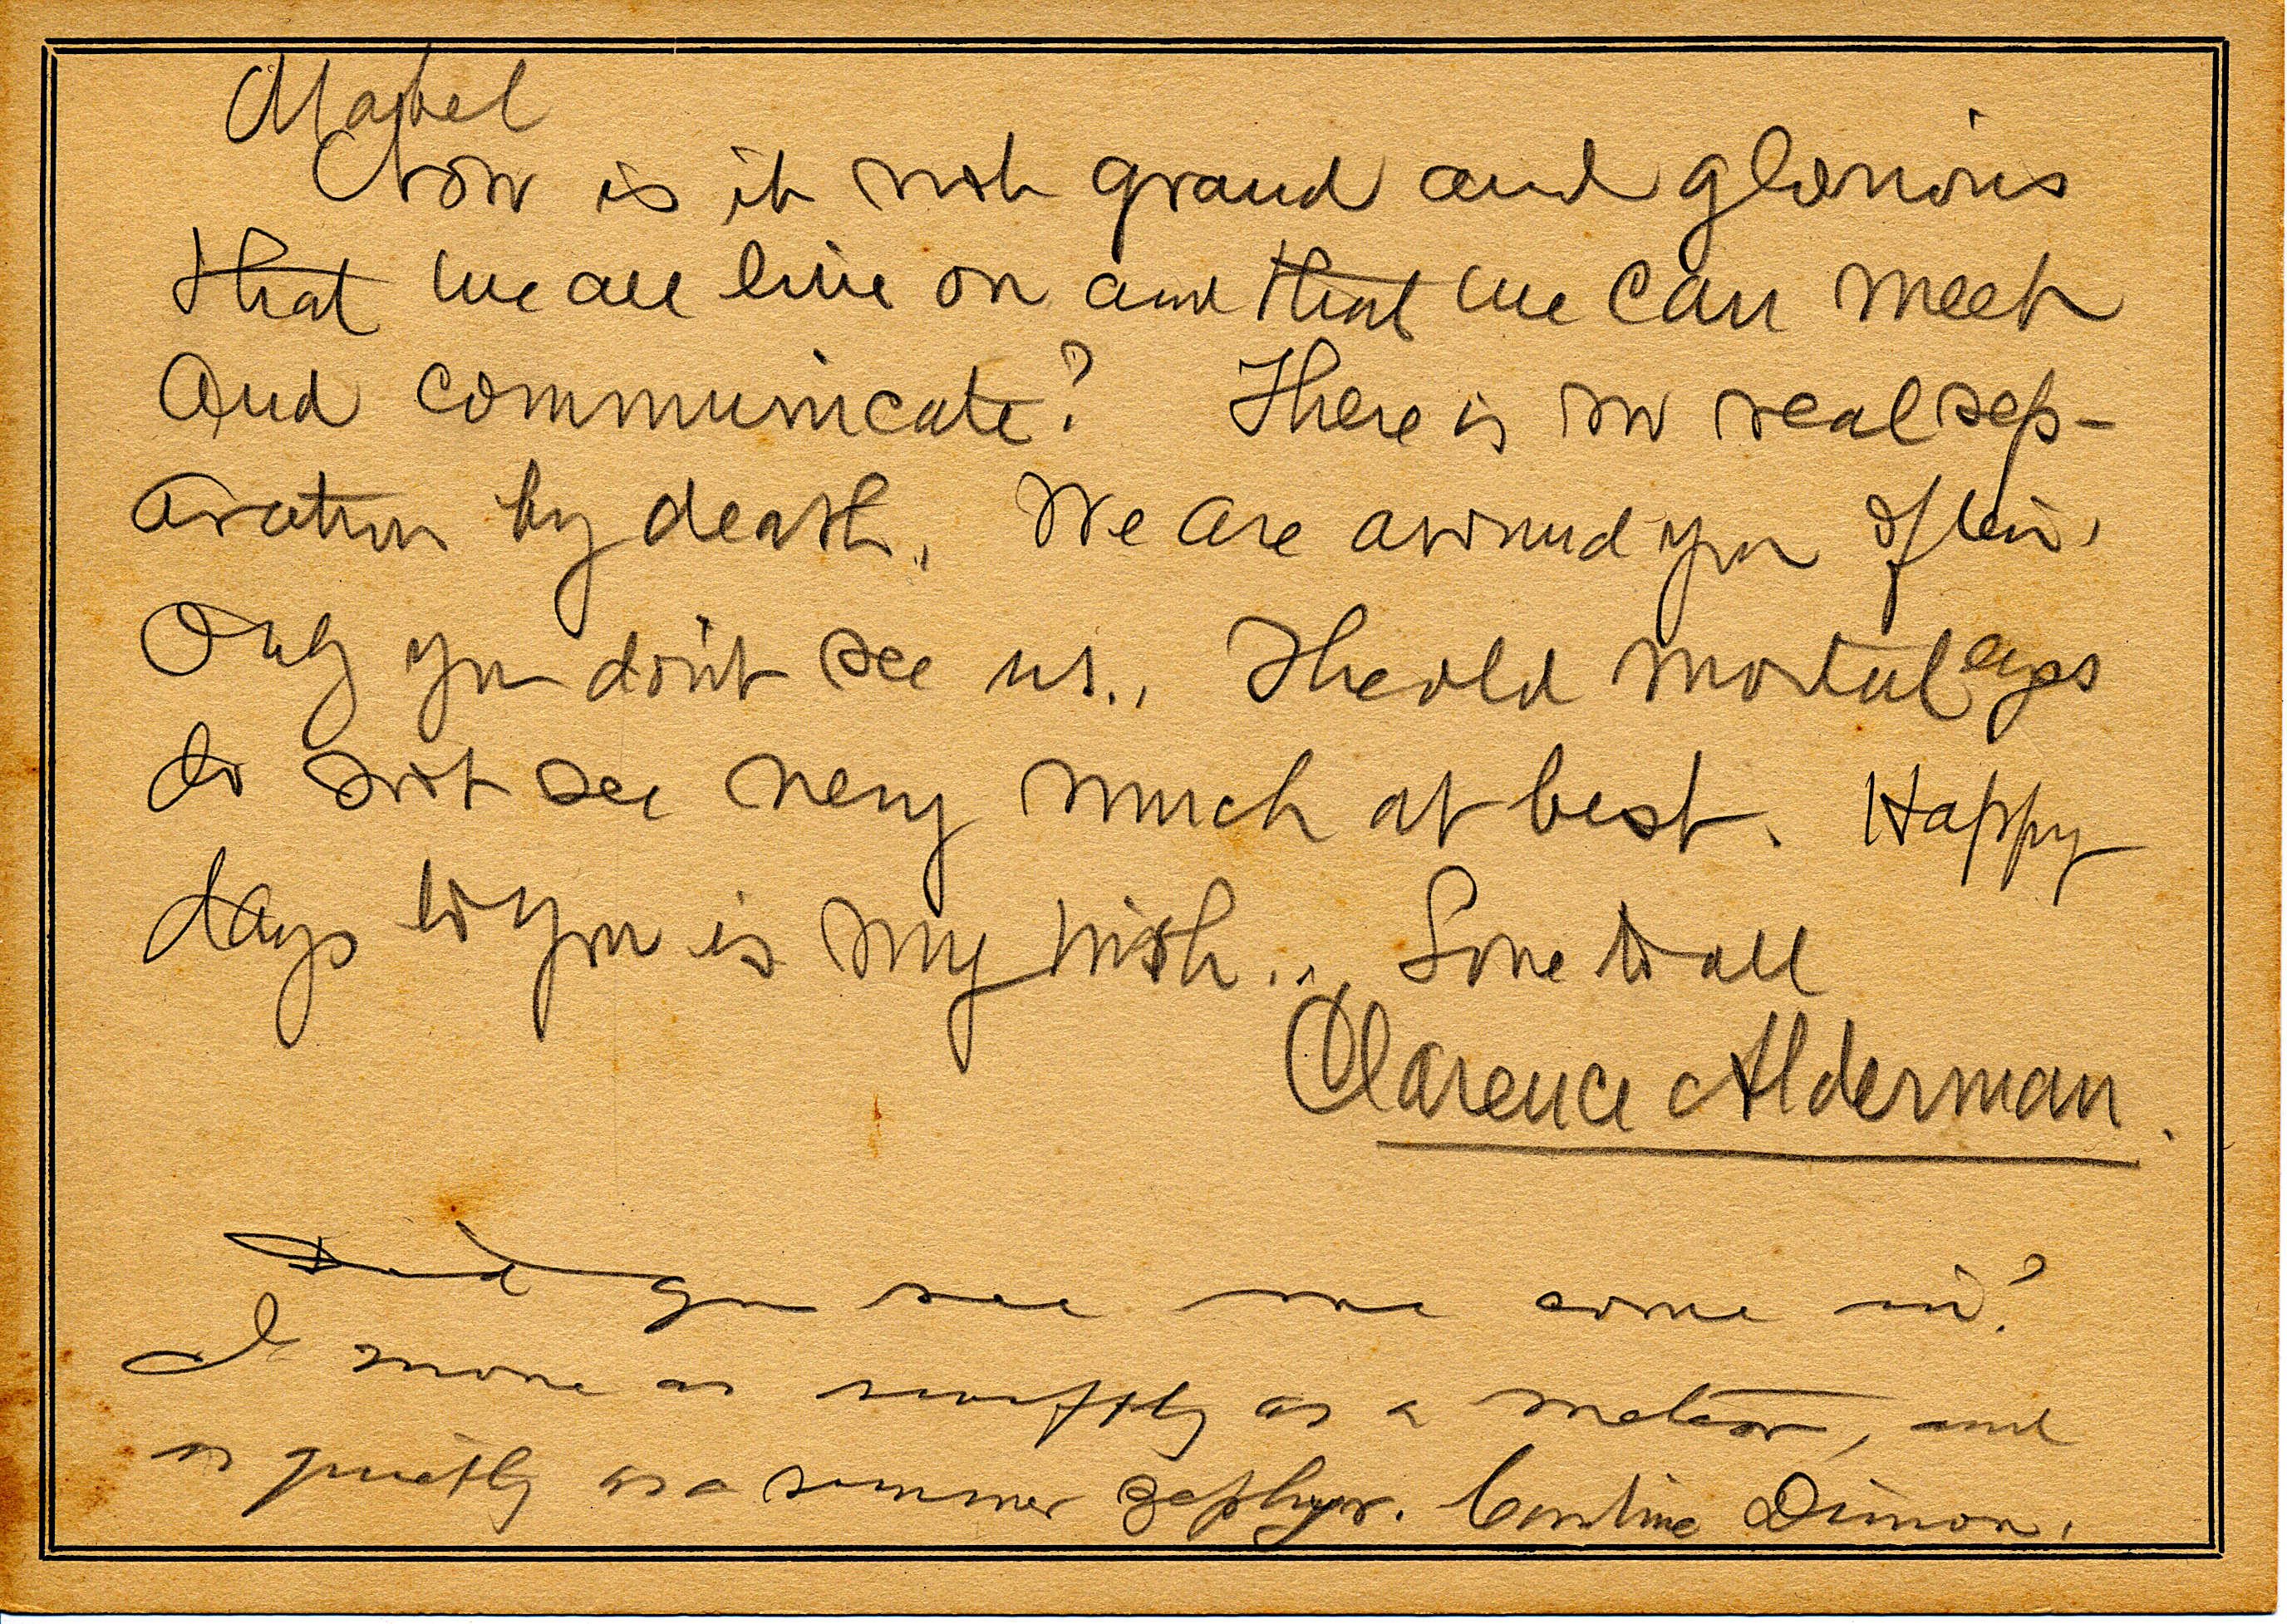 Mabel
Now is it not grand and glorious
that we all live on and that we can meet
and communicate? There is no real sep-
aration by death. We are around you often.
Only you don't see us.. The old mortal eyes
do not see very much at best. Happy
days to you is my wish... Love to all
Clarence Alderman.
Did you see me come in?
I move as swiftly as a meteor, and
as quietly as a summer zephyr. Caroline Dimon.